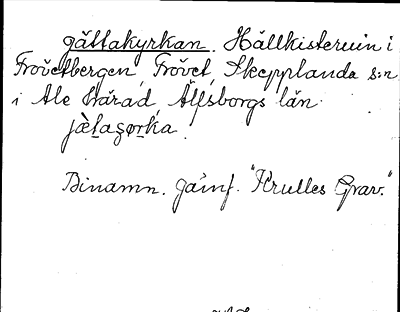 gättakyrkan. Hällkisteruin i
Frövetbergen, Frövet, Skepplanda s:n
i Ale härad, Älfsborgs län,
jæ̀taʒørka.
Binamn. Jämf. "Krulles Grav."